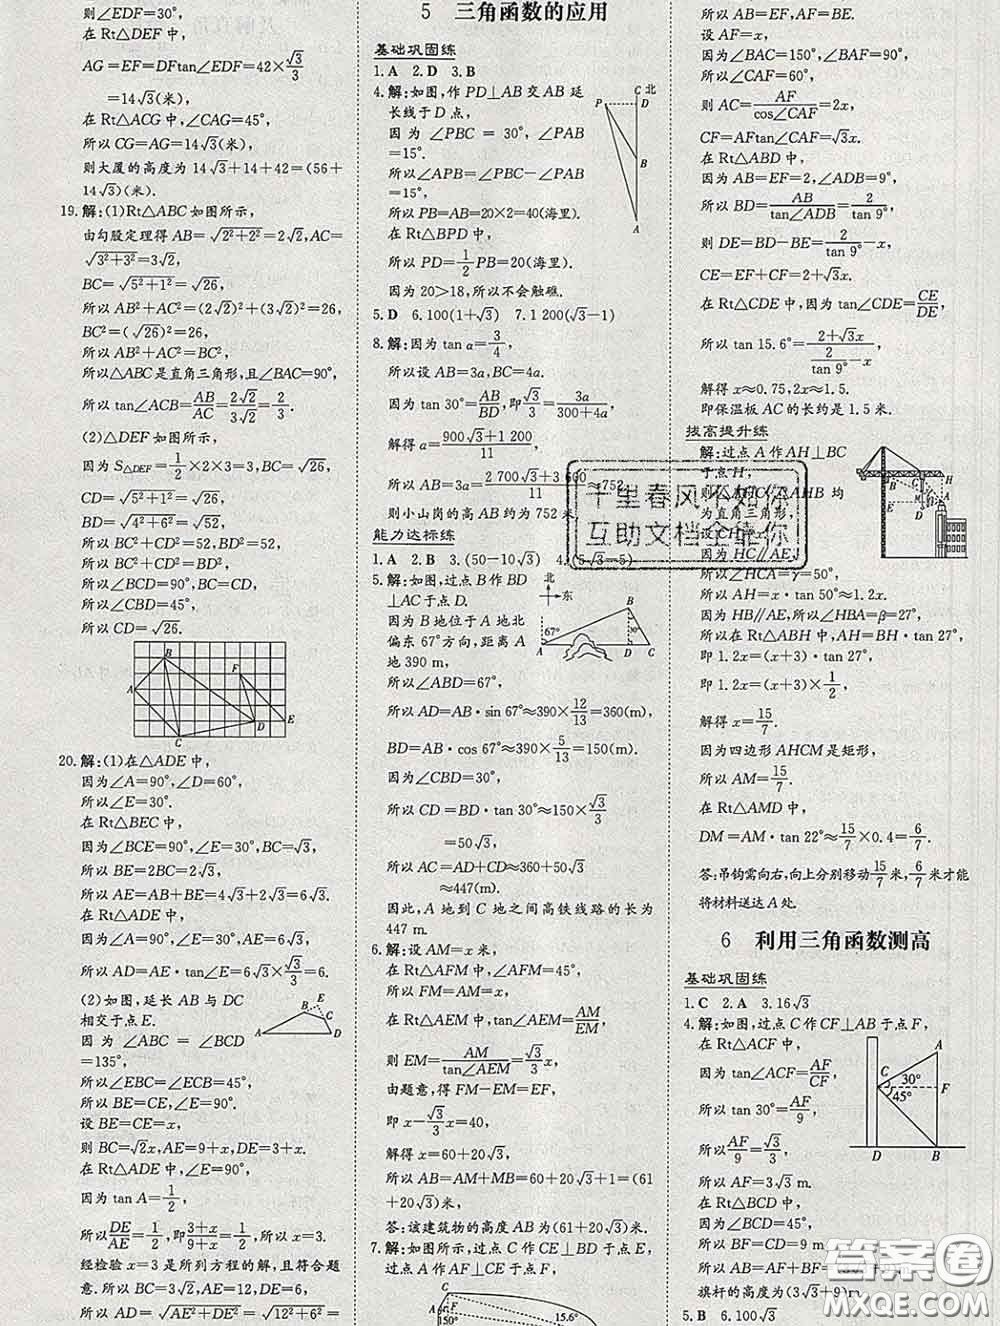 所以∠EDF=30°,
在Rt△DEF中,
AG=EF=DFtan∠EDF=42×√3/3
=14√3(米),
在Rt△ACG中,∠CAG=45°,
所以CG=AG=14√3(米),
则大厦的高度为14√3+14+42=(56+
14√3)(米).
19.解:(1)Rt△ABC如图所示,
由勾股定理得AB=√(2²+2²)=2√2,AC=
√(3²+3²)=3√2,
BC=√(5²+1²)=√26,
所以AB²+AC²=(2√2)²+(3√2)²=26,
BC²=(√26)²=26,
所以AB²+AC²=BC²,
所以△ABC是直角三角形,且∠BAC=90°,
所以tan∠ACB=AB/AC=2√2/3√2=2/3.
(2)△DEF如图所示,
因为S△DEF=1/2×2×3=3,BC=√26,
CD=√(5²+1²)=√26,
BD=√(4²+6²)=√52,
所以BC²+CD²=BD²,
所以BC⊥CD,BC=CD,
所以∠CBD=45°,
所以CD=√26.
A
B
C
D
E
F
20.解:(1)在△ADE中,
因为∠A=90°,∠D=60°,
所以∠E=30°.
在Rt△BEC中,
∠BCE=90°,BC=√3,
所以BE=2BC=2√3,
所以AE=AB+BE=4√3+2√3=6√3.
在Rt△ADE中,
∠A=90°,∠E=30°,AE=6√3,
所以AD=AE·tan∠E=6√3×√3/3=6.
(2)如图,延长AB与DC
相交于点E.
因为∠ABC=∠BCD
=135°,
所以∠EBC=∠ECB=45°,
所以BE=CE,∠E=90°.
设BE=CE=x,
则BC=√2x,AE=9+x,DE=3+x.
在Rt△ADE中,∠E=90°,
因为tan A=1/2,
所以DE/AE=1/2,即(3+x)/(9+x)=1/2,所以x=3.
经检验x=3是所列方程的解,且符合题
意.所以BC=3√2,AE=12,DE=6,
所以AD=√(AE²+DE²)=√(12²+6²)=
5 三角函数的应用
基础巩固练
1.A 2.D 3.B
4.解:如图,作PD⊥AB交AB延
长线于D点,
因为∠PBC=30°,∠PAB
=15°,
所以∠APB=∠PBC-∠PAB
=15°,
所以PB=AB=20×2=40(海里).
在Rt△BPD中,
所以PD=1/2PB=20(海里).
因为20>18,所以不会触礁.
C北
P
D
B
A
5.D 6.100(1+√3) 7.1 200(√3-1)
8.解:因为tan α=3/4,
所以设AB=3a,BC=4a.
因为tan 30°=AB/BD,即√3/3=3a/(300+4a),
解得a=(900√3+1 200)/11,
所以AB=3a=(2 700√3+3 600)/11≈752,
则小山岗的高AB约为752米.
能力达标练
1.A 2.B 3.(50-10√3) 4.(5√3-5)
5.解:如图,过点B作BD
⊥AC于点D.
因为B地位于A地北
偏东67°方向,距离A
地390 m,
所以∠ABD=67°,
所以AD=AB·sin 67°≈390×12/13=360(m),
BD=AB·cos 67°≈390×5/13=150(m).
因为∠CBD=30°,
所以CD=BD·tan 30°≈150×√3/3
=50√3,
所以AC=AD+CD≈360+50√3
≈447(m).
因此,A地到C地之间高铁线路的长为
447 m.
北
东
67°
30°
A
B
D
C
6.解:设AM=x米,
在Rt△AFM中,∠AFM=45°,
所以FM=AM=x,
在Rt△AEM中,tan∠AEM=AM/EM,
则EM=AM/tan∠AEM=√3/3x,
由题意,得FM-EM=EF,
即x-√3/3x=40,
解得x=60+20√3,
所以AB=AM+MB=60+20√3+1=(61
+20√3)米,
答:该建筑物的高度AB为(61+20√3)米.
7.解:如图所示,过点C作CE⊥BD于点E,
过点A作AF⊥CE于点F,
150°
15.6°
所以AB=EF,AF=BE.
设AF=x,
因为∠BAC=150°,∠BAF=90°,
所以∠CAF=60°,
则AC=AF/cos∠CAF=2x,
CF=AFtan∠CAF=√3x.
在Rt△ABD中,
所以BD=AB/tan∠ADB=2/tan 9°,
则DE=BD-BE=2/tan 9°-x,
CE=EF+CF=2+√3x.
在Rt△CDE中,因为tan∠CDE=CE/DE,
所以tan 15.6°=(2+√3x)/(2/tan 9°-x)
解得x≈0.75,2x≈1.5.
即保温板AC的长约是1.5米.
拔高提升练
解:过点A作AH⊥BC
于点H,
则△AHC,△AHB均
为直角三角形,
因为HC∥AE,
所以∠HCA=γ=50°,
所以AH=x·tan 50°≈1.2x.
因为HB∥AE,所以∠HBA=β=27°,
所以在Rt△ABH中,AH=BH·tan 27°,
即1.2x=(x+3)·tan 27°,
即1.2x=(x+3)×1/2,
解得x=15/7.
因为四边形AHCM是矩形,
所以AM=15/7.
在Rt△AMD中,
DM=AM·tan 22°≈15/7×0.4=6/7.
答:吊钩需向右,向上分别移动15/7米,6/7米才能
将材料送达A处.
6 利用三角函数测高
基础巩固练
1.C 2.A 3.16√3
4.解:如图,过点C作CF⊥AB于点F,
在Rt△ACF中,
因为tan∠ACF=AF/CF,
所以tan 30°=AF/9,
所以AF/9=√3/3,
所以AF=3√3 m.
在Rt△BCD中,
因为∠BCD=45°,
所以BF=CD=9 m,
所以AB=AF+BF=
旗杆的高度为(3√3+9)m
A
C
30°
F
45°
D
B
5.D 6.100√3
千里春风不如你
互助文档全靠你
答案圈
MXQE.COM